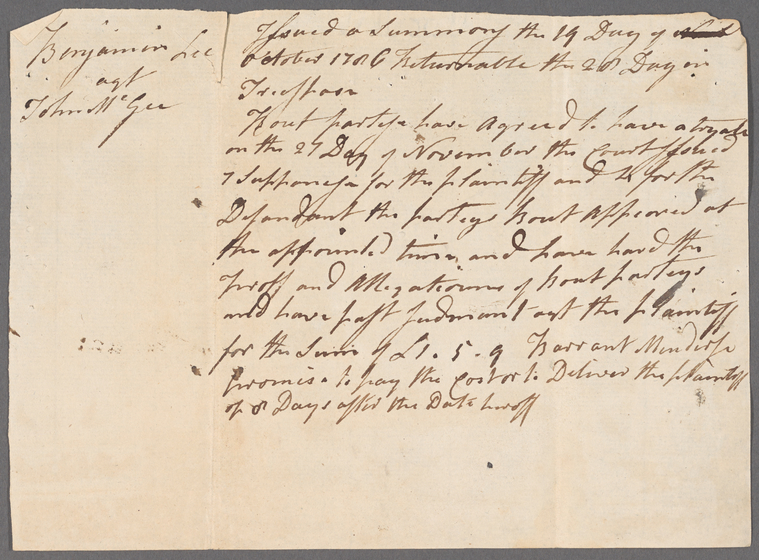 Benjamin Lee
agt
John McGee
Issued a Summons the 19 Day of
October 1786 Returnable the 28 Day in
Trespass
Bout partys have Agreed to have a tryale
on the 27 Day of November the Court Issued
7 Supponesa for the plaintiff and 4 for the
Defandant the parteys Bout Appeored at
the appointed time and have hard the
proff and Allegations of Bout parteys
and have past Judment agt the plaintiff
for the Sum of £1. 5. 9 Barrant Minderse
promise to pay the cost or to Deliver the plaintiff
of 8 Days after the Date hroff